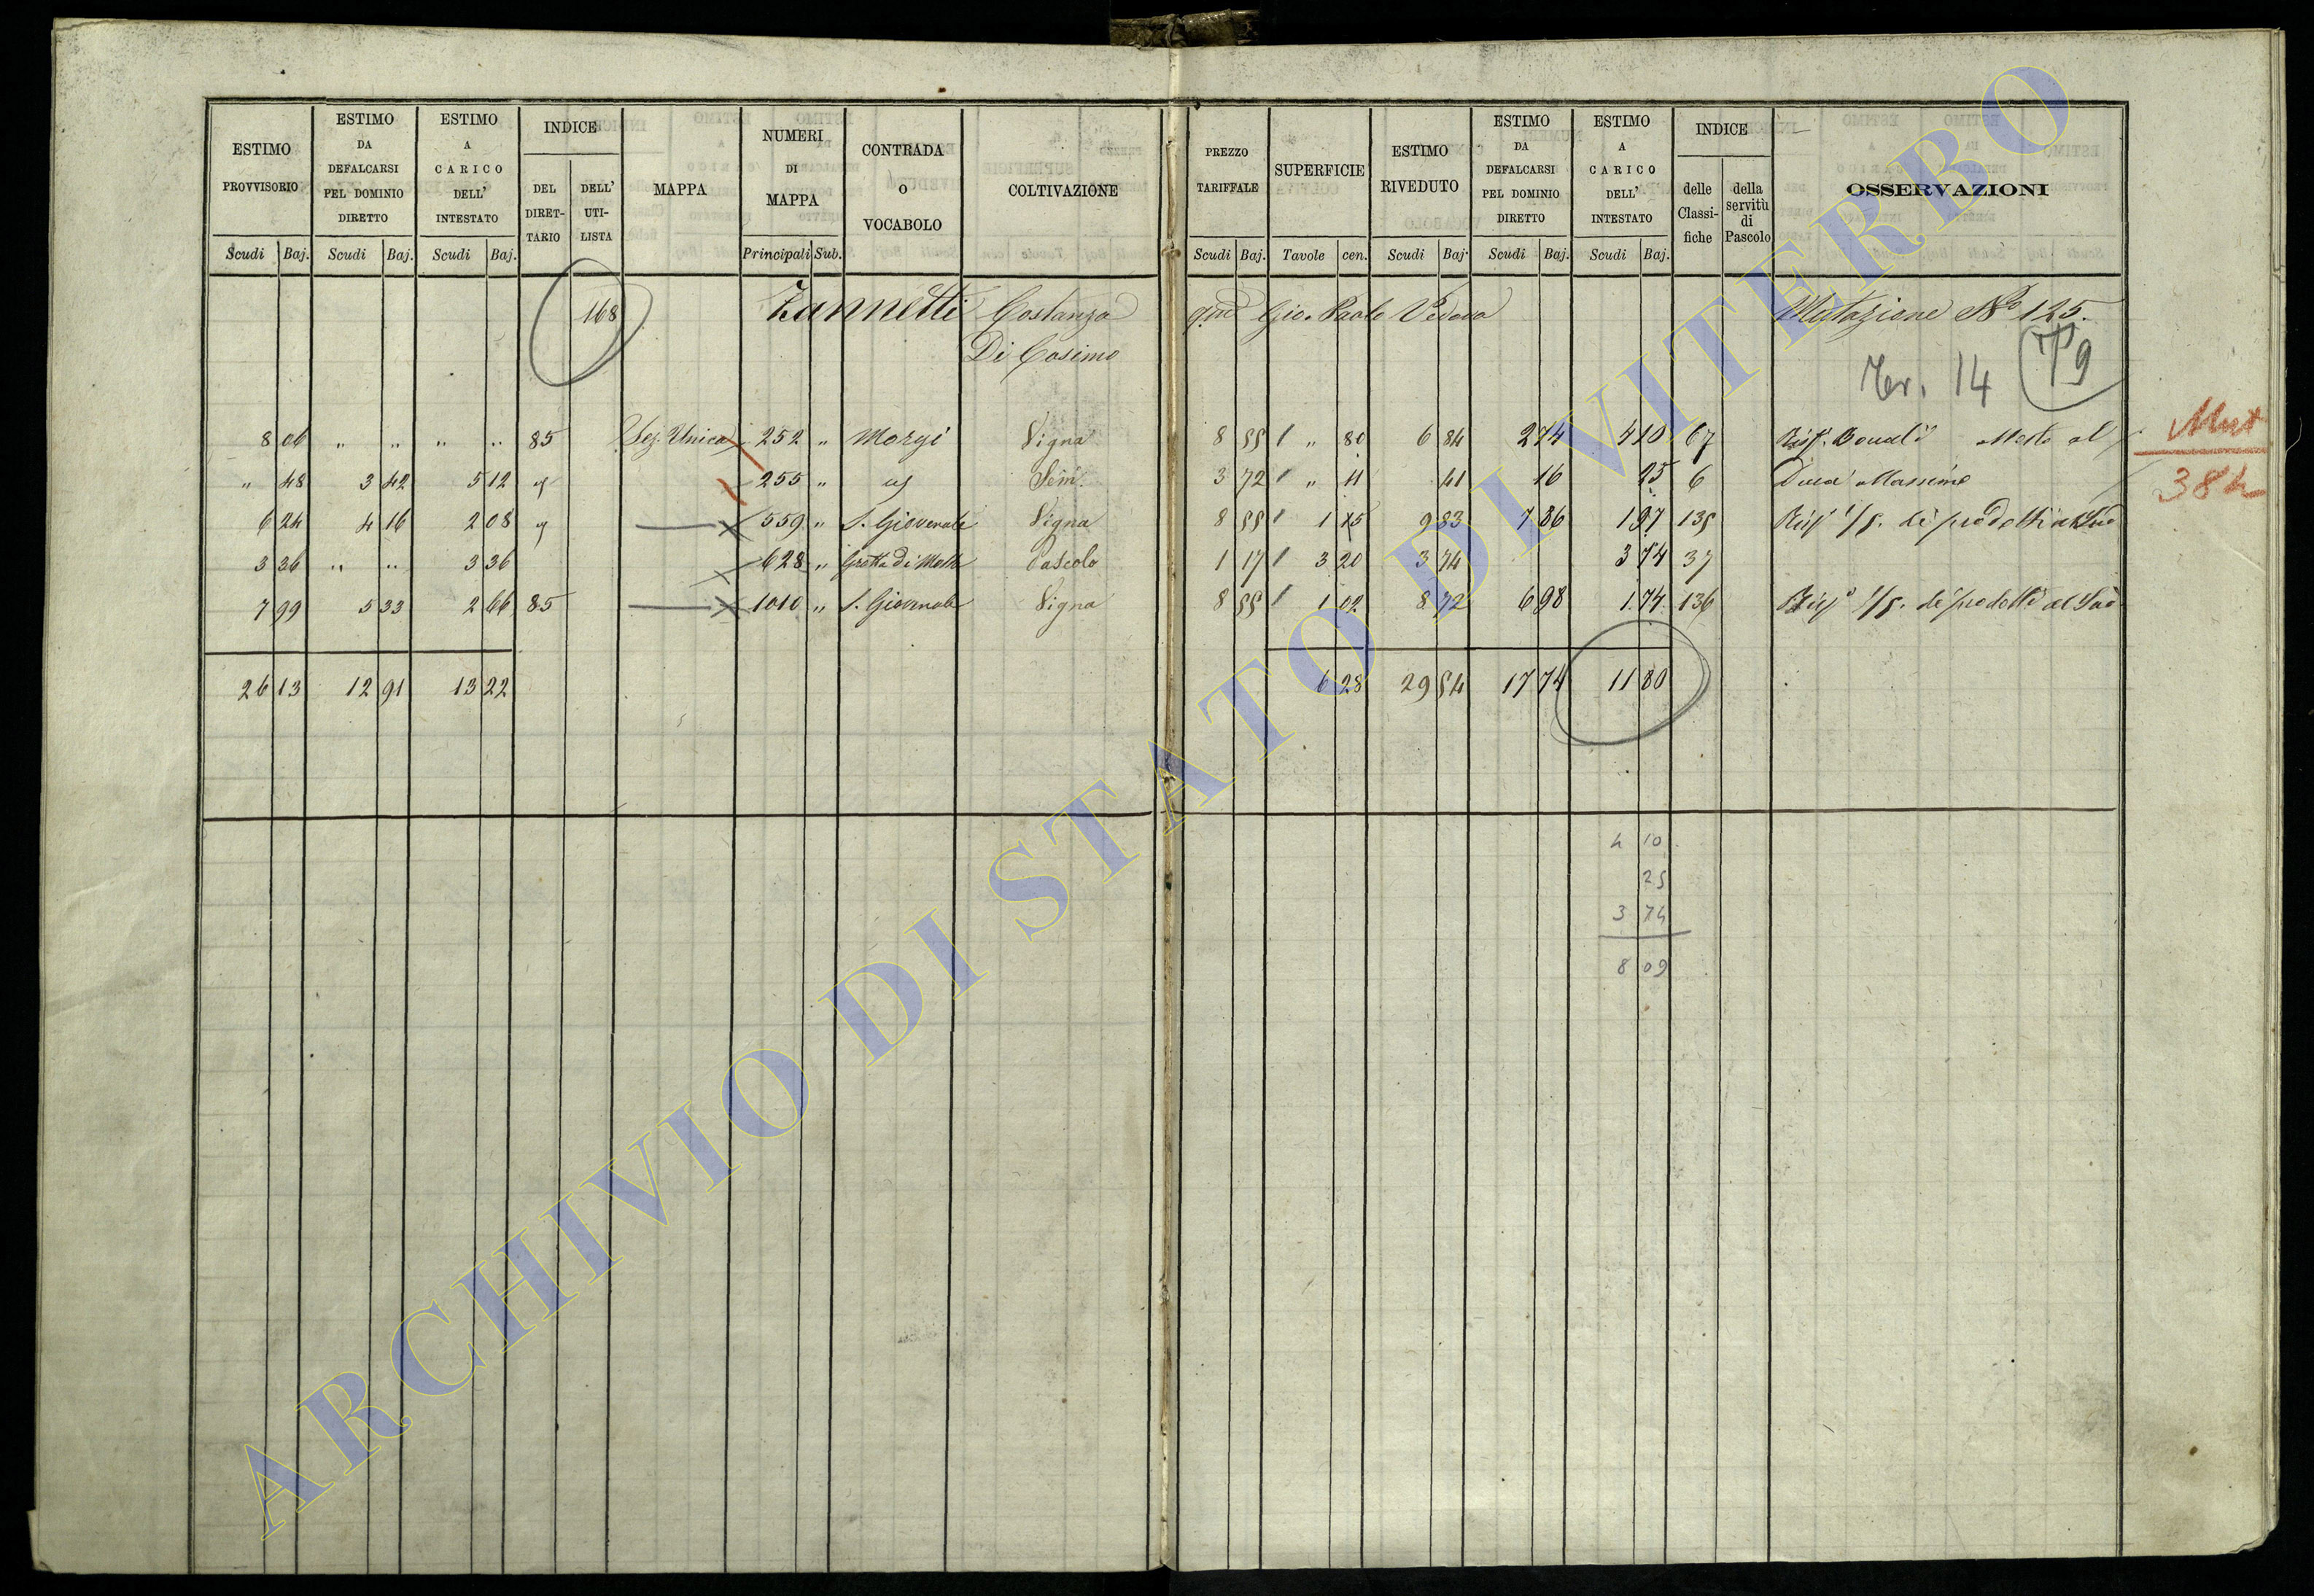 ESTIMO PROVVISORIO ESTIMO DA DEFALCARSI PEL DOMINIO DIRETTO ESTIMO A CARICO DELL' INTESTATO INDICE DEL DIRETTARIO DELL' UTILISTA MAPPA NUMERI DI MAPPA CONTRADA O VOCABOLO COLTIVAZIONE PREZZO TARIFFALE SUPERFICIE ESTIMO RIVEDUTO ESTIMO DA DEFALCARSI PEL DOMINIO DIRETTO ESTIMO A CARICO DELL' INTESTATO INDICE delle Classifiche della servitù di Pascolo OSSERVAZIONI
Scudi Baj. Scudi Baj. Scudi Baj. Principali Sub. Scudi Baj. Tavole cen. Scudi Baj. Scudi Baj. Scudi Baj.
168 Zannetti Costanza qm Gio. Paolo Vedova Mutazione No 125.
Di Cosimo
14 9
8 06 " " " " 85 Sez. Unica 252 " Morgi Vigna 8 55 " 80 6 84 2 74 4 10 67 al
" 48 3 42 5 12 255 " Sem. 3 72 " 11 41 16 25 6 Duca Massimo
6 24 4 16 2 08 559 " S. Giovenale Vigna 8 55 1 15 9 83 7 86 1 97 135 1/5. di prodotti al
3 36 " " 3 36 628 " Grotta di Pascolo 1 17 3 20 3 74 3 74 37
7 99 5 33 2 66 85 1010 " S. Giovenale Vigna 8 55 1 02 8 72 6 98 1 74 136 1/5. di prodotti al
26 13 12 91 13 22 6 28 29 54 17 74 11 80
4 10
25
3 74
8 09
Mut
384
ARCHIVIO DI STATO DI VITERBO